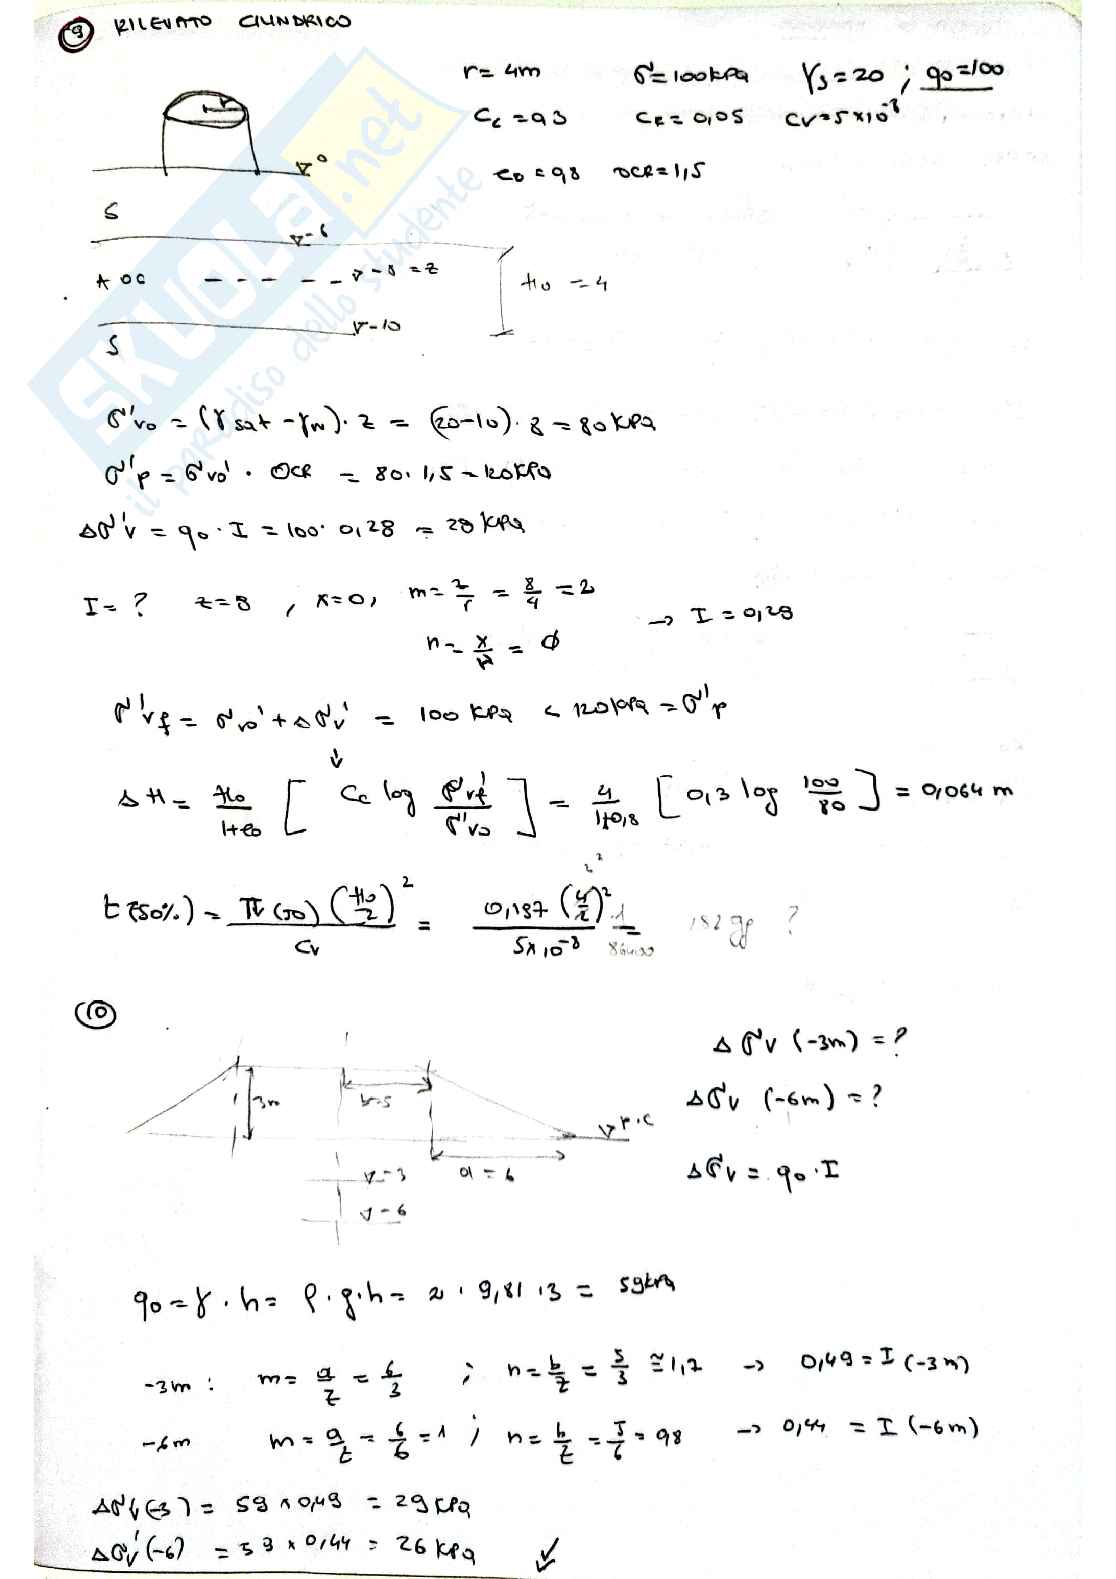 9 RILEVATO CILINDRICO
r = 4m σ' = 100 kPa γs = 20 ; q0 = 100
Cc = 0,3 CR = 0,05 CV = 5×10^-8
e0 = 0,8 OCR = 1,5
r
∇ 0
S
∇ -6
A OC ∇ -8 = z H0 = 4
∇ -10
S
σ'v0 = (γsat - γw) · z = (20-10) · 8 = 80 kPa
σ'p = σv0' · OCR = 80 · 1,5 = 120 kPa
Δσ'v = q0 · I = 100 · 0,28 = 28 kPa
I = ? z = 8 , x = 0, m = z/r = 8/4 = 2 → I = 0,28
n = x/r = ø
σ'vf = σv0' + Δσv' = 100 kPa < 120 kPa = σ'p
↓
ΔH = H0/(1+e0) [ Cc log σ'vf/σ'v0 ] = 4/(1+0,8) [ 0,3 log 100/80 ] = 0,064 m
t (50%) = TV (50) (H0/2)^2 / CV = 0,197 (4/2)^2 / 5×10^-8 · 1/86400 = 182 gg ?
10
3m b=5 ∇ p.c
a = 6
∇ -3
∇ -6
Δσv (-3m) = ?
Δσv (-6m) = ?
Δσv = q0 · I
q0 = γ · h = ρ · g · h = 2 · 9,81 · 3 = 59 kPa
-3m : m = a/z = 6/3 ; n = b/z = 5/3 ≅ 1,7 → 0,49 = I (-3m)
-6m m = a/z = 6/6 = 1 ; n = b/z = 5/6 = 0,8 → 0,44 = I (-6m)
Δσ'v(-3) = 59 × 0,49 = 29 kPa
Δσv'(-6) = 59 × 0,44 = 26 kPa
SKUOLA.net
il paradiso dello studente